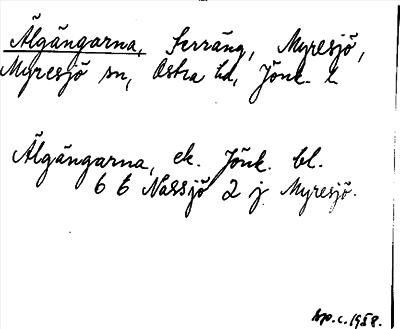 Älgängarna, terräng, Myresjö,
Myresjö sn, Östra hd, Jönk. l
Älgängarna, ek. Jönk. bl.
6 E Nässjö 2 j Myresjö.
1958.